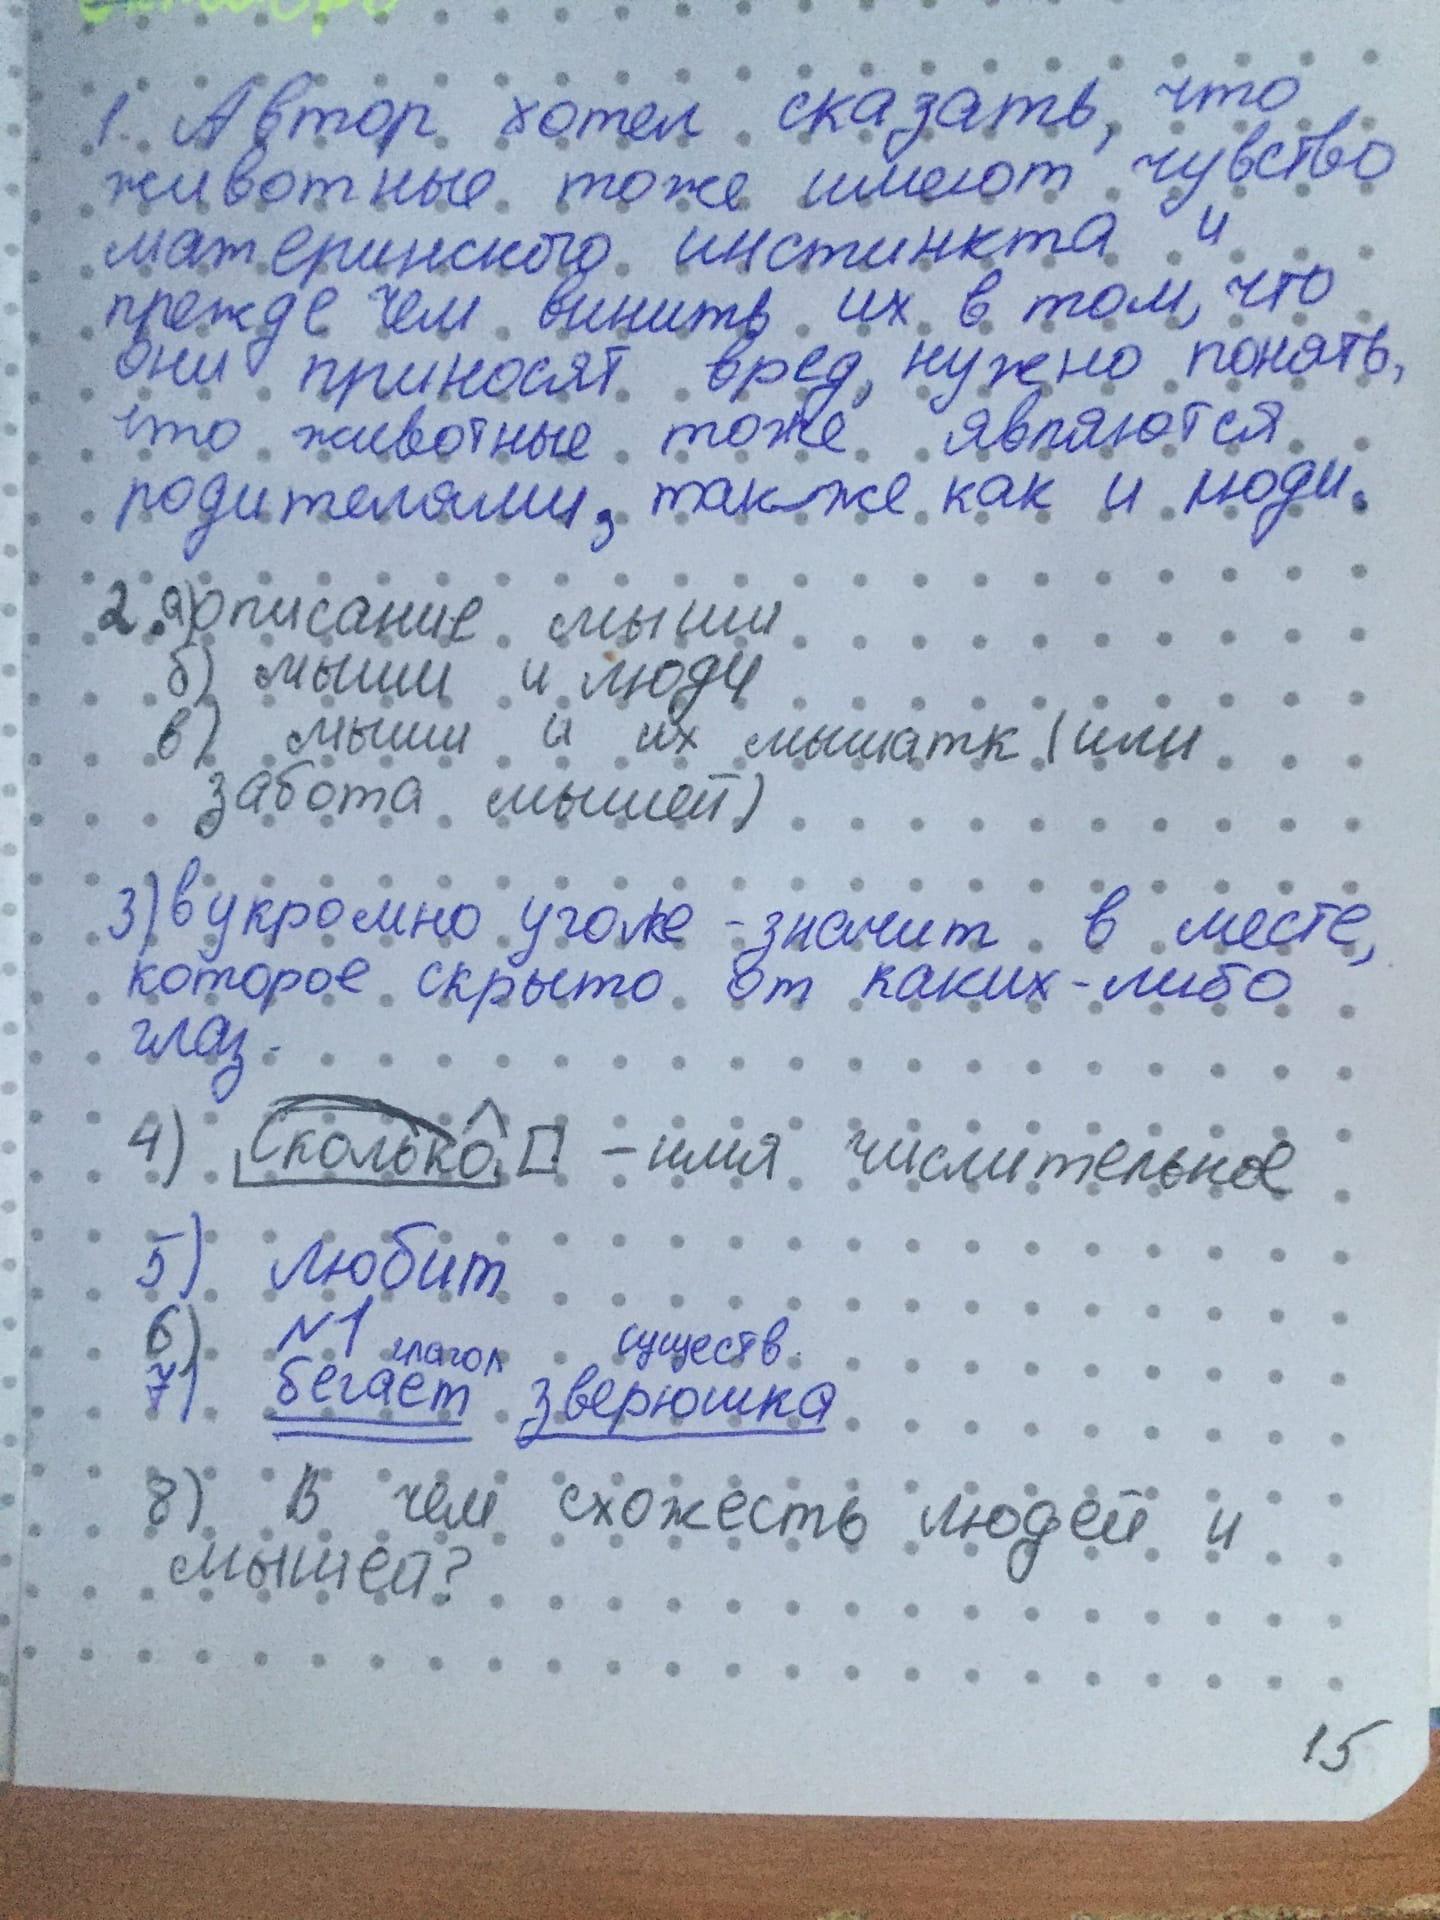 1. Автор хотел сказать, что
животные тоже имеют чувство
материнского инстинкта и
прежде чем винить их в том, что
они приносят вред, нужно понять,
что животные тоже являются
родителями, также как и люди.
2.а) описание мыши
б) мыши и люди
в) мыши и их мышатк (или
забота мышей)
3) в укромно уголке - значит в месте,
которое скрыто от каких-либо
глаз.
4) Сколько - имя числительное
5) любит
6) №1
глагол существ.
7) бегает зверюшка
8) В чем схожесть людей и
мышей?
15